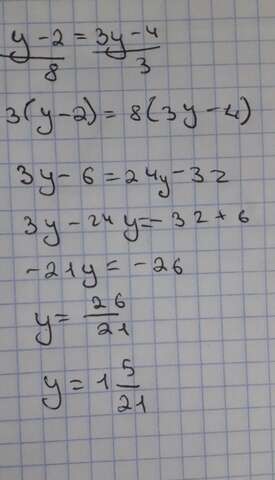 y-2/8 = 3y-4/3
3(y-2) = 8(3y-4)
3y-6=24y-32
3y-24y=-32+6
-21y = -26
y= 26/21
y=1 5/21